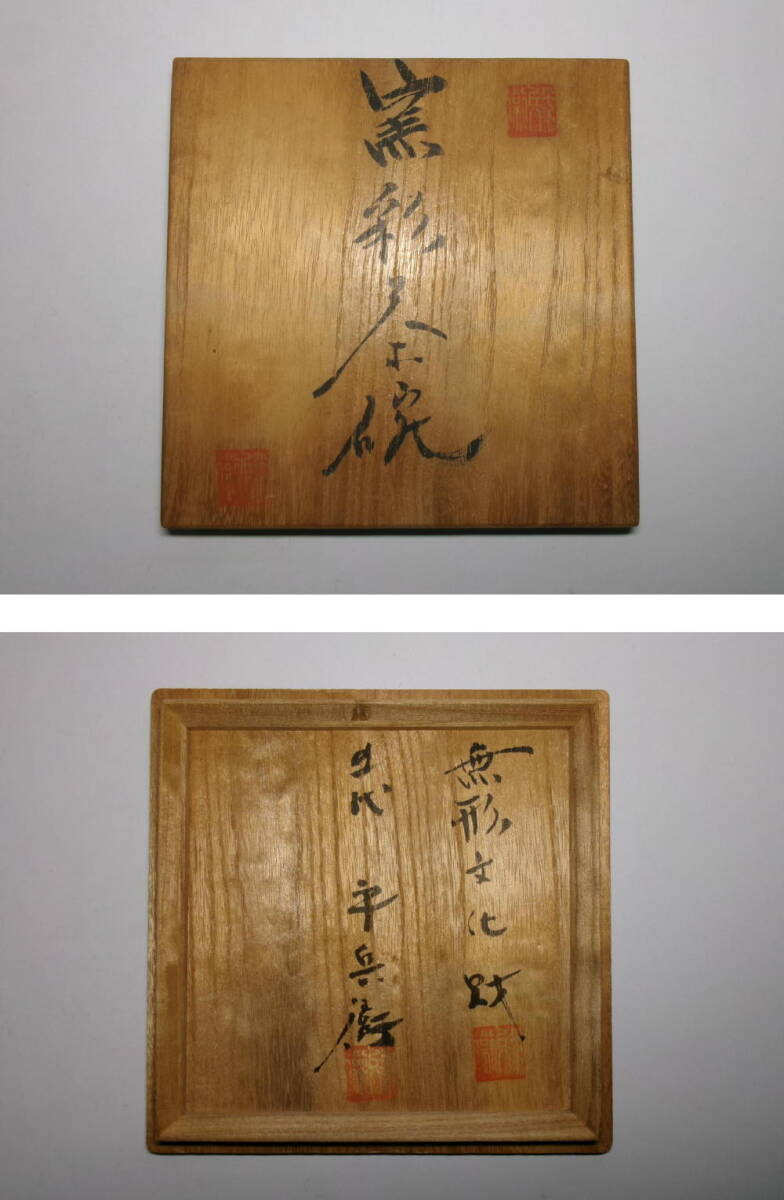 窯彩茶碗
無形文化財
代 平兵衛